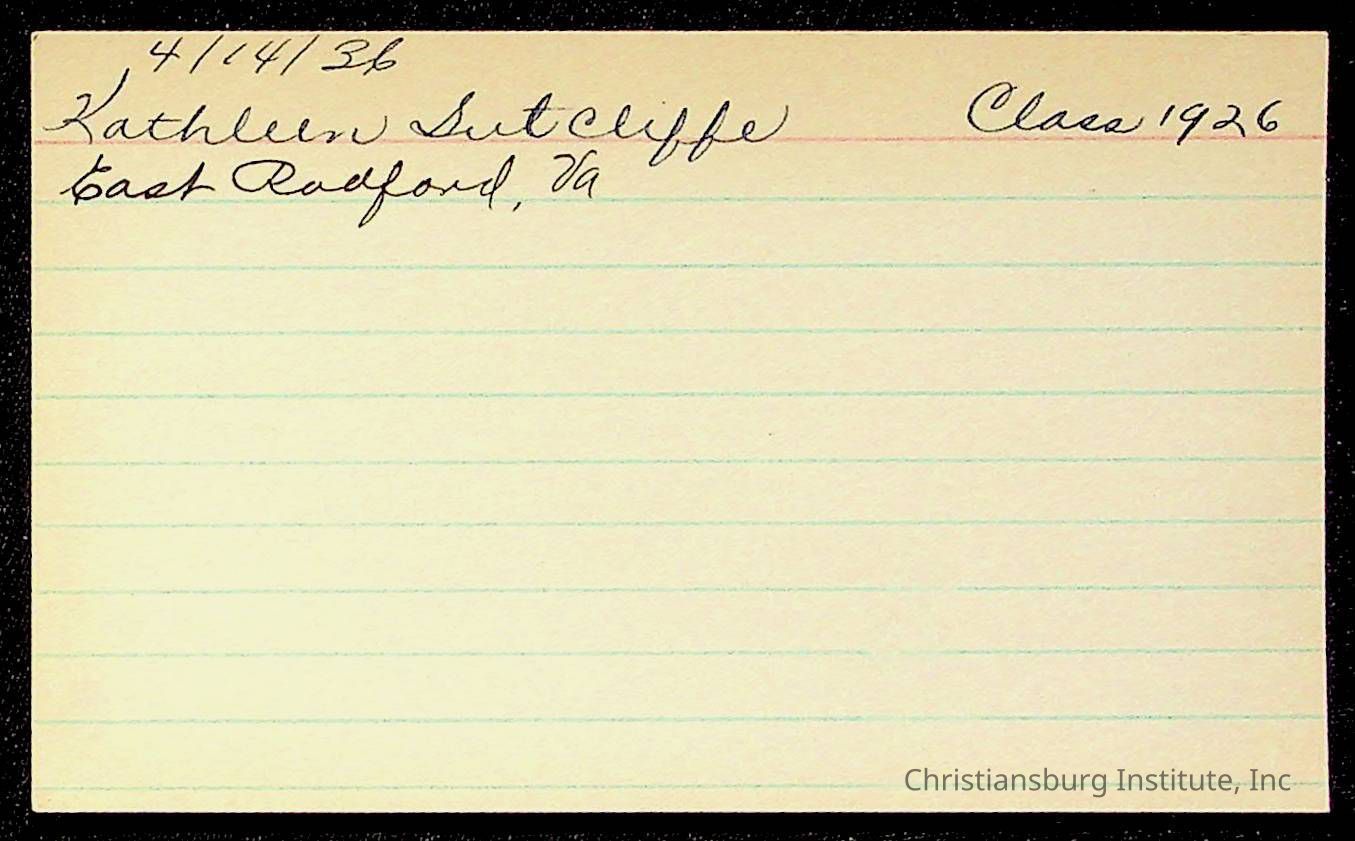 4/14/36
Kathleen Sutcliffe Class 1926
East Radford, Va
Christiansburg Institute, Inc